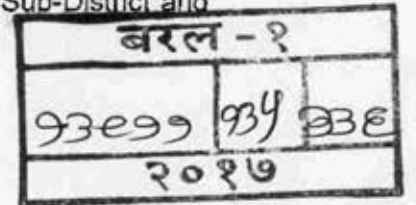 Sub-District and
बरल - १
१३९११ १३५ १३६
२०१७